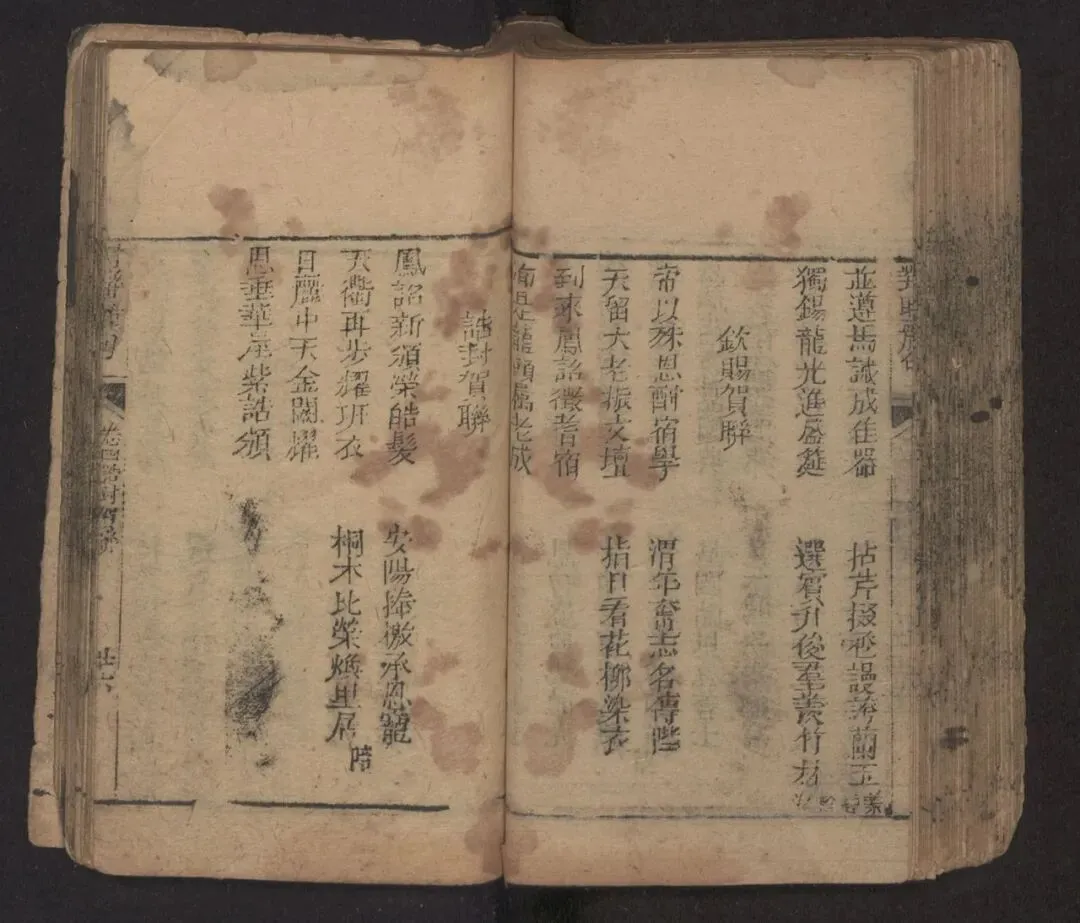 並遵馬誡成佳器
拈芹掇秀謾誇蘭玉
獨錫龍光進盛筵
選賓升後羣羨竹林
欽賜賀聯
帝以殊恩酬宿學
渭年奮志名傳陛
天留大老振文壇
指日看花柳染衣
到來鳳詔徵耆宿
老成
誥封賀聯
鳳詔新頒榮皓髮
安陽捧檄承恩寵
天衢再步耀班衣
桐木比榮煥里居
時
日麗中天金闕耀
恩垂華屋紫誥頒
廿六